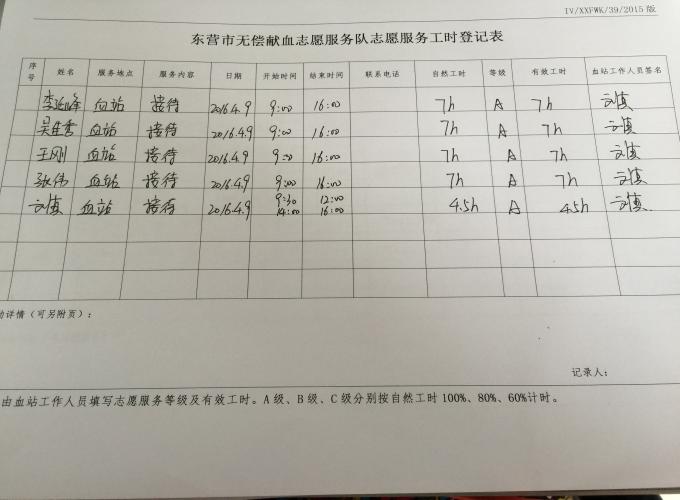 IV/XXFWK/39/2015 版
东营市无偿献血志愿服务队志愿服务工时登记表
序号 姓名 服务地点 服务内容 日期 开始时间 结束时间 联系电话 自然工时 等级 有效工时 血站工作人员签名
李延峰 血站 接待 2016.4.9 9:00 16:00 7h A 7h 刘慎
吴佳秀 血站 接待 2016.4.9 9:00 16:00 7h A 7h 刘慎
王刚 血站 接待 2016.4.9 9:00 16:00 7h A 7h 刘慎
张伟 血站 接待 2016.4.9 9:00 16:00 7h A 7h 刘慎
刘慎 血站 接待 2016.4.9 9:30 12:00 4.5h A 4.5h 刘慎
14:00 16:00
动详情（可另附页）：
记录人：
由血站工作人员填写志愿服务等级及有效工时。A 级、B 级、C 级分别按自然工时 100%、80%、60%计时。